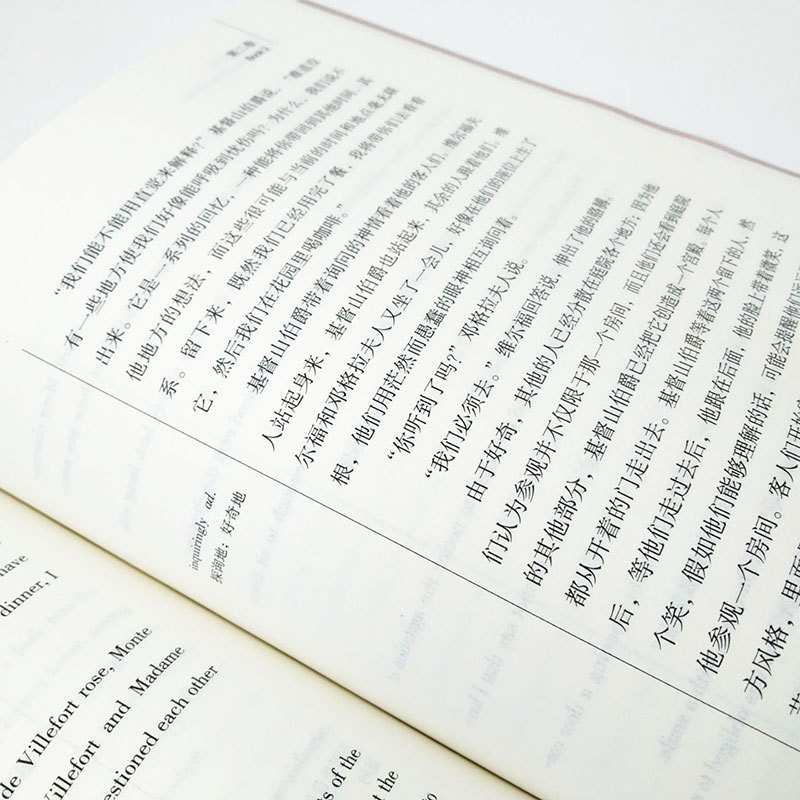 第二卷
“我们能不能用直觉来解释?”基督山伯爵说,
有一些地方使我们好像能呼吸到忧伤吗?为什么,我们说不
出来。它是一系列的回忆,一种能将你带回到其他时间、其
他地方的想法,而这些很可能与当前的时间和地点毫无联
系。留下来,既然我们已经用完了餐,我将带你们去看看
它,然后我们在花园里喝咖啡。”
基督山伯爵带着询问的神情看着他的客人们,维尔福夫
人站起身来,基督山伯爵也站起来,其余的人跟着他们。维
尔福和邓格拉夫人又坐了一会儿,好像在他们的座位上生了
根,他们用茫然而愚蠢的眼神相互询问着。
“你听到了吗?”邓格拉夫人说。
“我们必须去。”维尔福回答说,伸出了他的胳膊。
由于好奇,其他的人已经分散在庭院各个地方;因为他
们认为参观并不仅限于那一个房间,而且他们还会看到庭院
的其他部分,基督山伯爵已经把它创造成一个宫殿。每个人
都从开着的门走出去。基督山伯爵等着这两个留下的人,然
后,等他们走过去后,他跟在后面,他的脸上带着微笑,这
个笑,假如他们能够理解的话,可能会提醒他们
他参观一个房间。客人们开始
方风格,里面
inquiringly ad.
探询地;好奇地
have
dinner, I
de Villefort rose, Monte
Villefort and Madame
estioned each other
s of the
t the
to